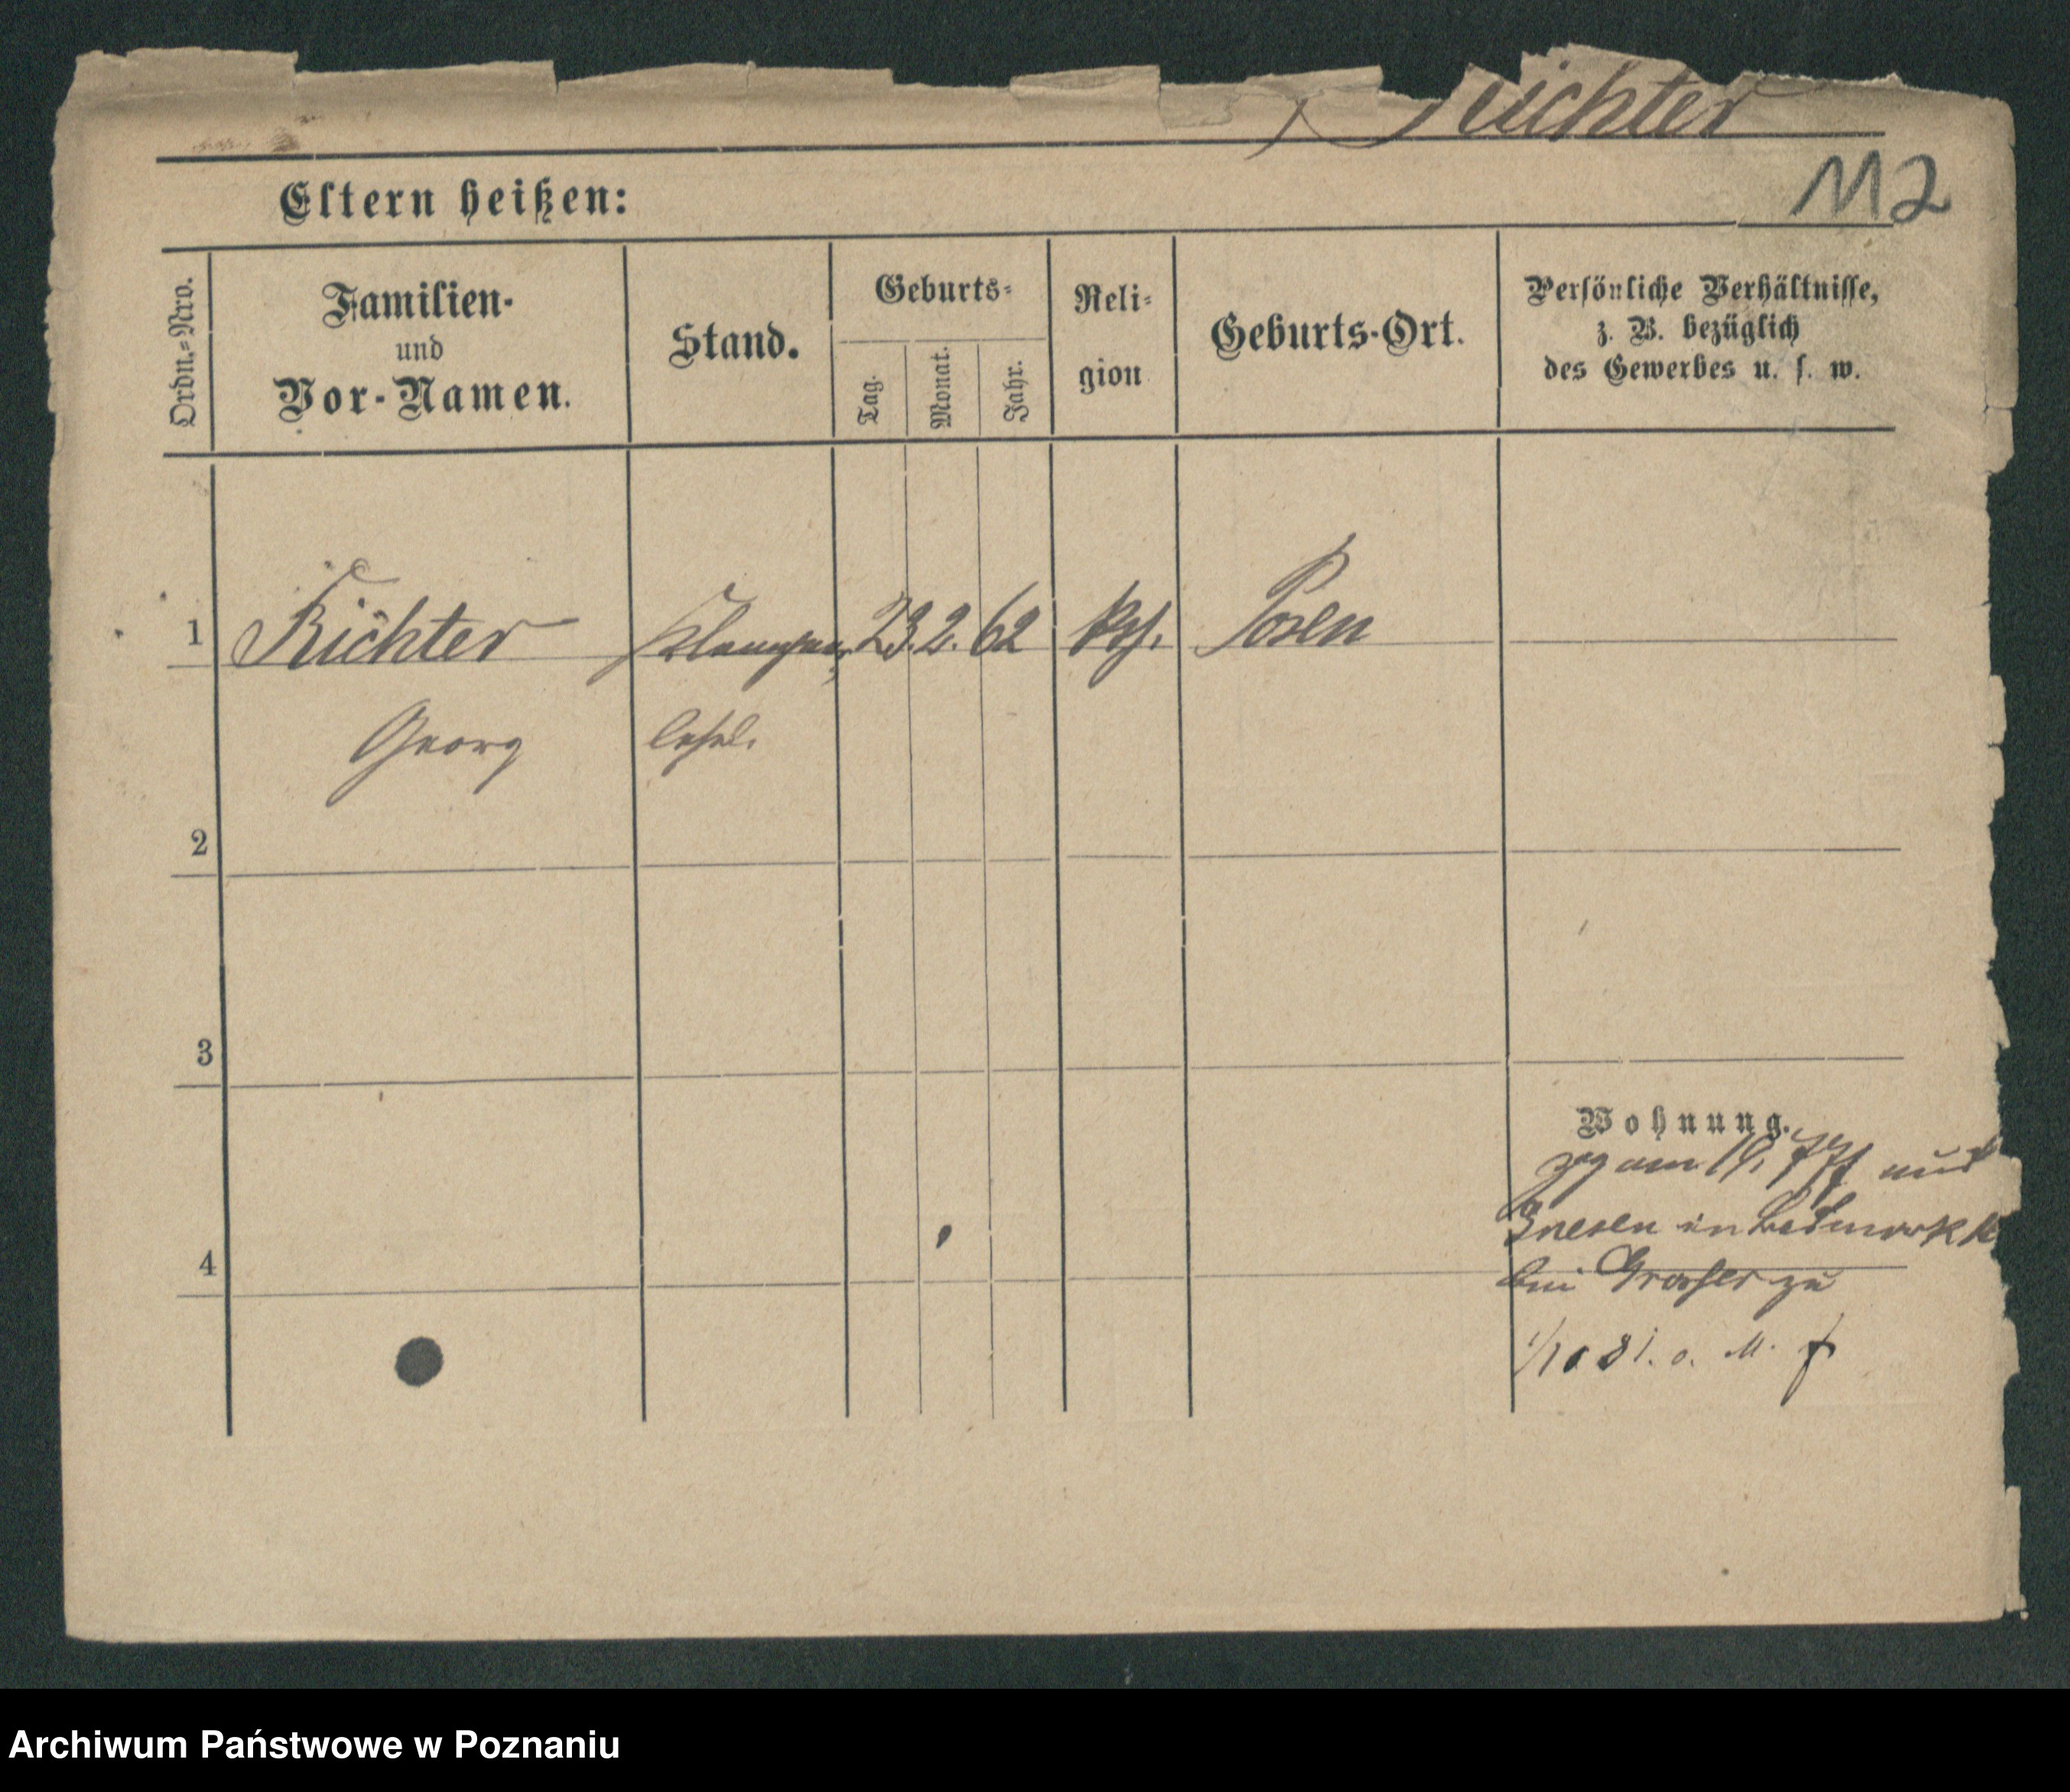 Richter
112
Eltern heißen:
Ordn.=Nro.
Familien-
und
Vor-Namen.
Stand.
Geburts-
Tag.
Monat.
Jahr.
Reli-
gion
Geburts-Ort.
Persönliche Verhältnisse,
z. B. bezüglich
des Gewerbes u. s. w.
1 Richter Klempner 23. 2. 62 Posen
Georg lehrl.
2
3
Wohnung.
zog am 19. 7 aus
Gnesen in
4
bei Grosser zu
1/10 81. o. M.
Archiwum Państwowe w Poznaniu